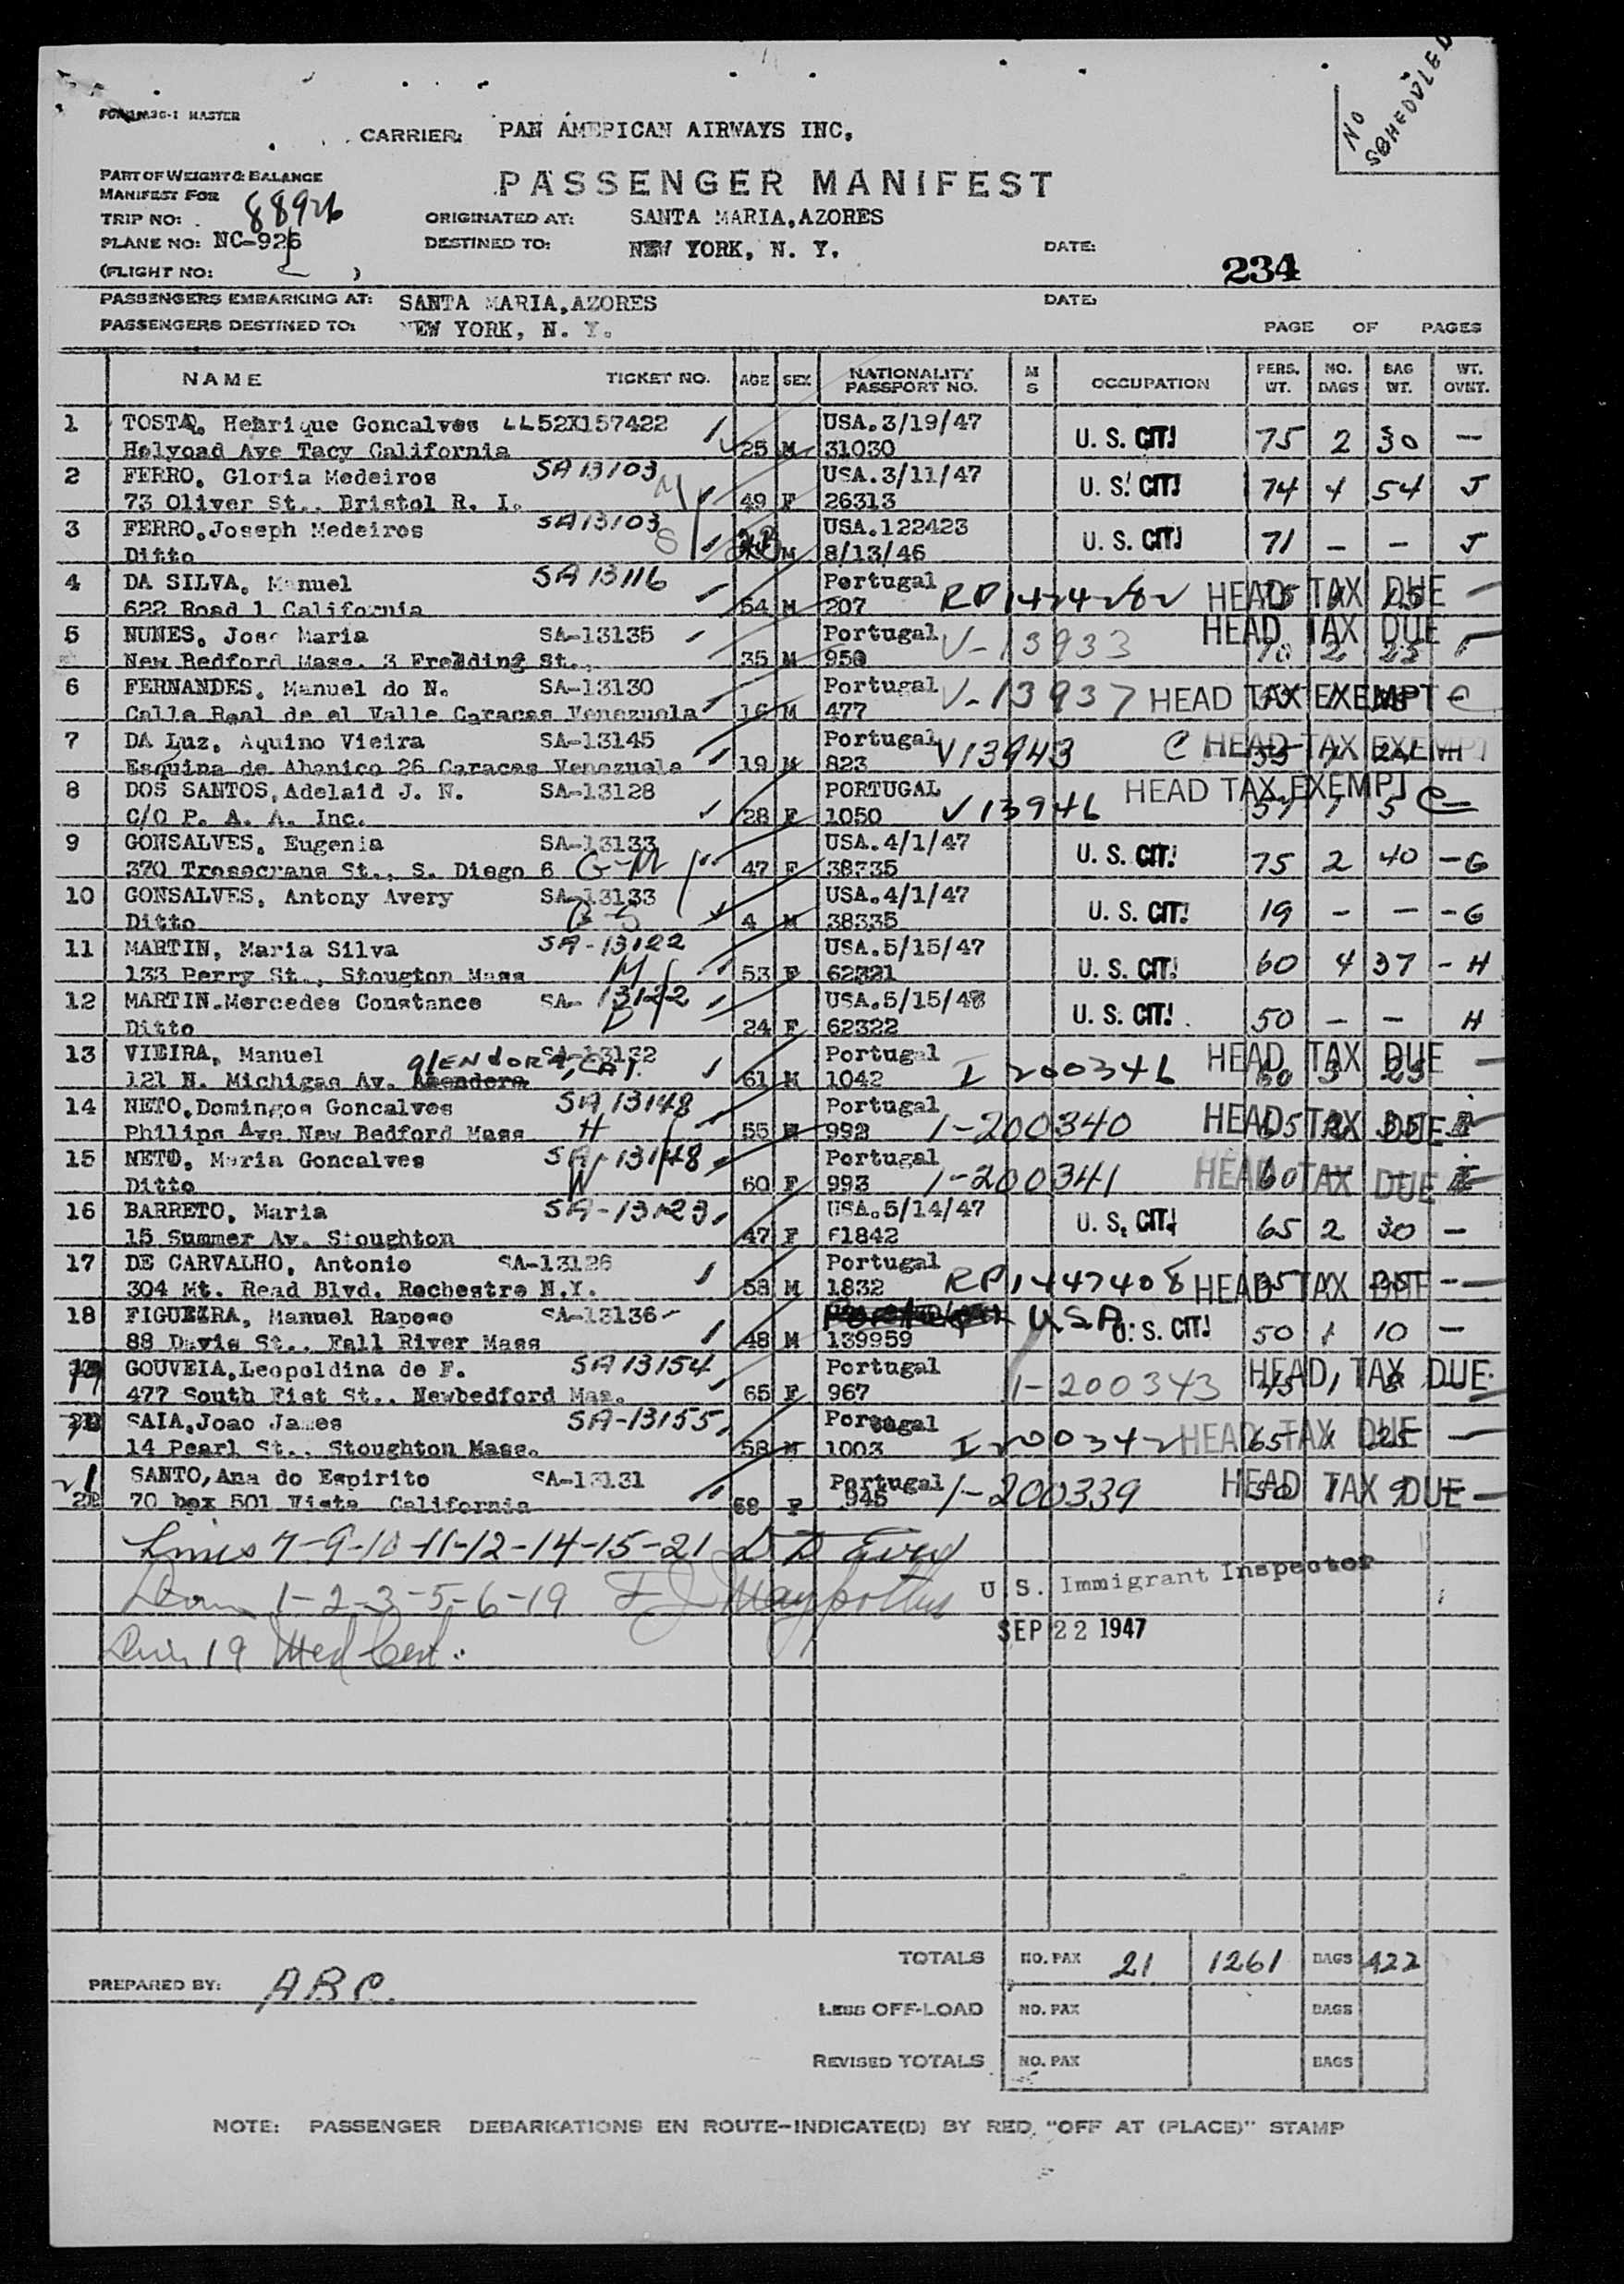 NO
SCHEDULED
FORM M36-1 MASTER
CARRIER: PAN AMERICAN AIRWAYS INC.
PART OF WEIGHT & BALANCE
MANIFEST FOR
PASSENGER MANIFEST
TRIP NO: 88926 ORIGINATED AT: SANTA MARIA, AZORES
PLANE NO: NC-926 DESTINED TO: NEW YORK, N. Y. DATE:
(FLIGHT NO: ) 234
PASSENGERS EMBARKING AT: SANTA MARIA, AZORES DATE:
PASSENGERS DESTINED TO: NEW YORK, N. Y. PAGE OF PAGES
NAME TICKET NO. AGE SEX NATIONALITY PASSPORT NO. M S OCCUPATION PERS. WT. NO. BAGS BAG WT. WT. OVWT.
1 TOSTA, Henrique Goncalves LL52X157422 USA.3/19/47
Holyoad Ave Tacy California 25 M 31030 U. S. CIT! 75 2 30 —
2 FERRO, Gloria Medeiros SA 13103 USA.3/11/47
73 Oliver St., Bristol R. I. M 49 F 26313 U. S. CIT! 74 4 54 J
3 FERRO, Joseph Medeiros SA 13103 USA.122423
Ditto S M 8/13/46 U. S. CIT! 71 — — J
4 DA SILVA, Manuel SA 13116 Portugal
622 Road 1 California 54 M 207 RP 1424282 HEAD TAX DUE —
5 NUNES, Jose Maria SA-13135 Portugal
New Bedford Mass. 3 Fredding St., 35 M 950 V-13933 HEAD TAX DUE 70 2 25
6 FERNANDES, Manuel do N. SA-13130 Portugal
Calle Real de el Valle Caracas Venezuela 16 M 477 V-13937 HEAD TAX EXEMPT C
7 DA Luz, Aquino Vieira SA-13145 Portugal
Esquina de Abanico 26 Caracas Venezuela 19 M 823 V13943 C HEAD TAX EXEMPT
8 DOS SANTOS, Adelaid J. N. SA-13128 PORTUGAL
C/O P. A. A. Inc. 28 F 1050 V13946 HEAD TAX EXEMPT 57 1 5 C
9 GONSALVES, Eugenia SA-13133 USA.4/1/47
370 Trosecrans St., S. Diego 6 G-M 47 F 38335 U. S. CIT! 75 2 40 -G
10 GONSALVES, Antony Avery SA-13133 USA.4/1/47
Ditto G-S 4 M 38335 U. S. CIT! 19 — — -G
11 MARTIN, Maria Silva SA-13122 USA.5/15/47
133 Perry St., Stougton Mass M 53 F 62321 U. S. CIT! 60 4 37 -H
12 MARTIN.Mercedes Constance SA-13122 USA.5/15/48
Ditto D 24 F 62322 U. S. CIT! 50 — — H
13 VIEIRA, Manuel SA-13132 Portugal
121 N. Michigan Av. GLENDORA, CAL. 61 M 1042 I 200346 HEAD TAX DUE 60 3 25 —
14 NETO, Domingos Goncalves SA 13148 Portugal
Philips Ave New Bedford Mass H 55 M 992 1-200340 HEAD TAX DUE
15 NETO, Maria Goncalves SA-13148 Portugal
Ditto W 60 F 993 1-200341 HEAD TAX DUE 60
16 BARRETO, Maria SA-13123 USA.5/14/47
15 Summer Av. Stoughton 47 F 61842 U. S. CIT! 65 2 30 —
17 DE CARVALHO, Antonio SA-13126 Portugal
304 Mt. Read Blvd. Rochestre N.Y. 58 M 1832 RP 1447408 HEAD TAX DUE —
18 FIGUEIRA, Manuel Raposo SA-13136 USA
88 Davis St., Fall River Mass 48 M 139959 U. S. CIT! 50 1 10 —
19 GOUVEIA, Leopoldina de F. SA 13154 Portugal
477 South Fist St., Newbedford Mas. 65 F 967 1-200343 HEAD TAX DUE
20 SAIA, Joao James SA-13155 Portugal
14 Pearl St., Stoughton Mass. 58 M 1003 I 200342 HEAD TAX DUE 65 1 25 —
21 SANTO, Ana do Espirito SA-13131 Portugal
70 box 501 Vista California 68 F 945 1-200339 HEAD TAX DUE 50 1 9 —
Lines 7-9-10-11-12-14-15-21
1-2-3-5-6-19 U. S. Immigrant Inspector
Line 19 Med Cert. SEP 22 1947
TOTALS NO. PAX 21 1261 BAGS 422
PREPARED BY: ABC.
LESS OFF-LOAD NO. PAX BAGS
REVISED TOTALS NO. PAX BAGS
NOTE: PASSENGER DEBARKATIONS EN ROUTE-INDICATE(D) BY RED "OFF AT (PLACE)" STAMP